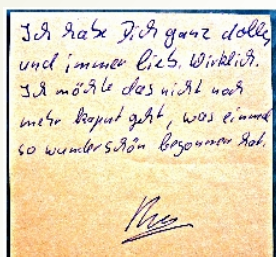 Ich habe Dich ganz dolle
und immer lieb. Wirklich.
Ich möchte das nicht noch
mehr kaputt geht, was einmal
so wunderschön begonnen hat.